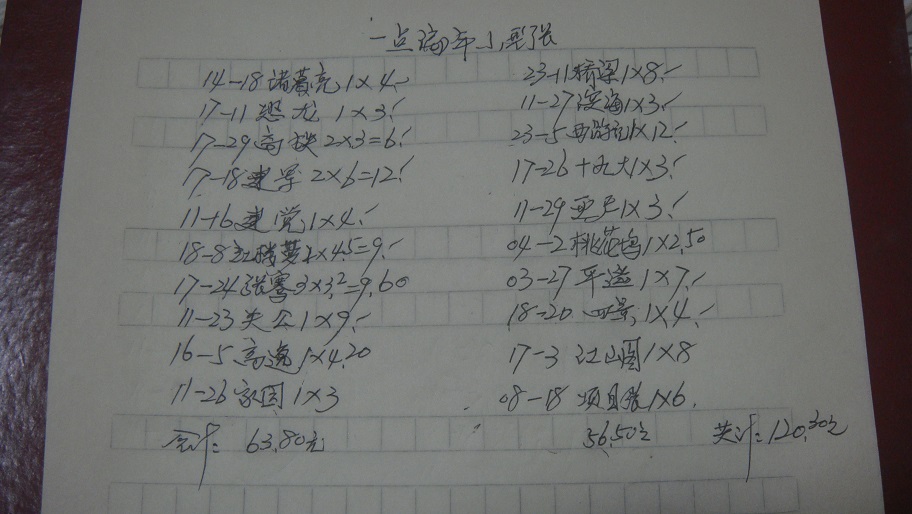 一点流年小型张
14-18诸葛亮1×4.
17-11恐龙 1×3.
17-29高铁2×3=6.
17-18建军2×6=12.
11-16建党1×4.
18-8红楼梦2×4.5=9.
17-24张骞3×3.2=9.60
11-23关公1×9.
16-5高逸1×4.20
11-26家园1×3
合计: 63.80元
23-11桥梁1×8.
11-27滨海1×3.
23-5西游记1×12.
17-26十九大1×3.
11-29亚天1×3.
04-2桃花坞1×2.50
03-27平遥1×7.
18-20四景1×4.
17-3江山图1×8
08-18项目张1×6.
56.50元
共计:120.30元